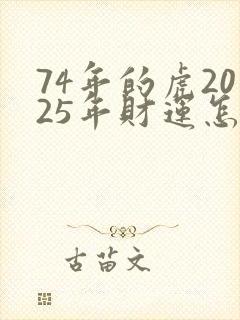 74年的虎20
25年財運怎
古苗文